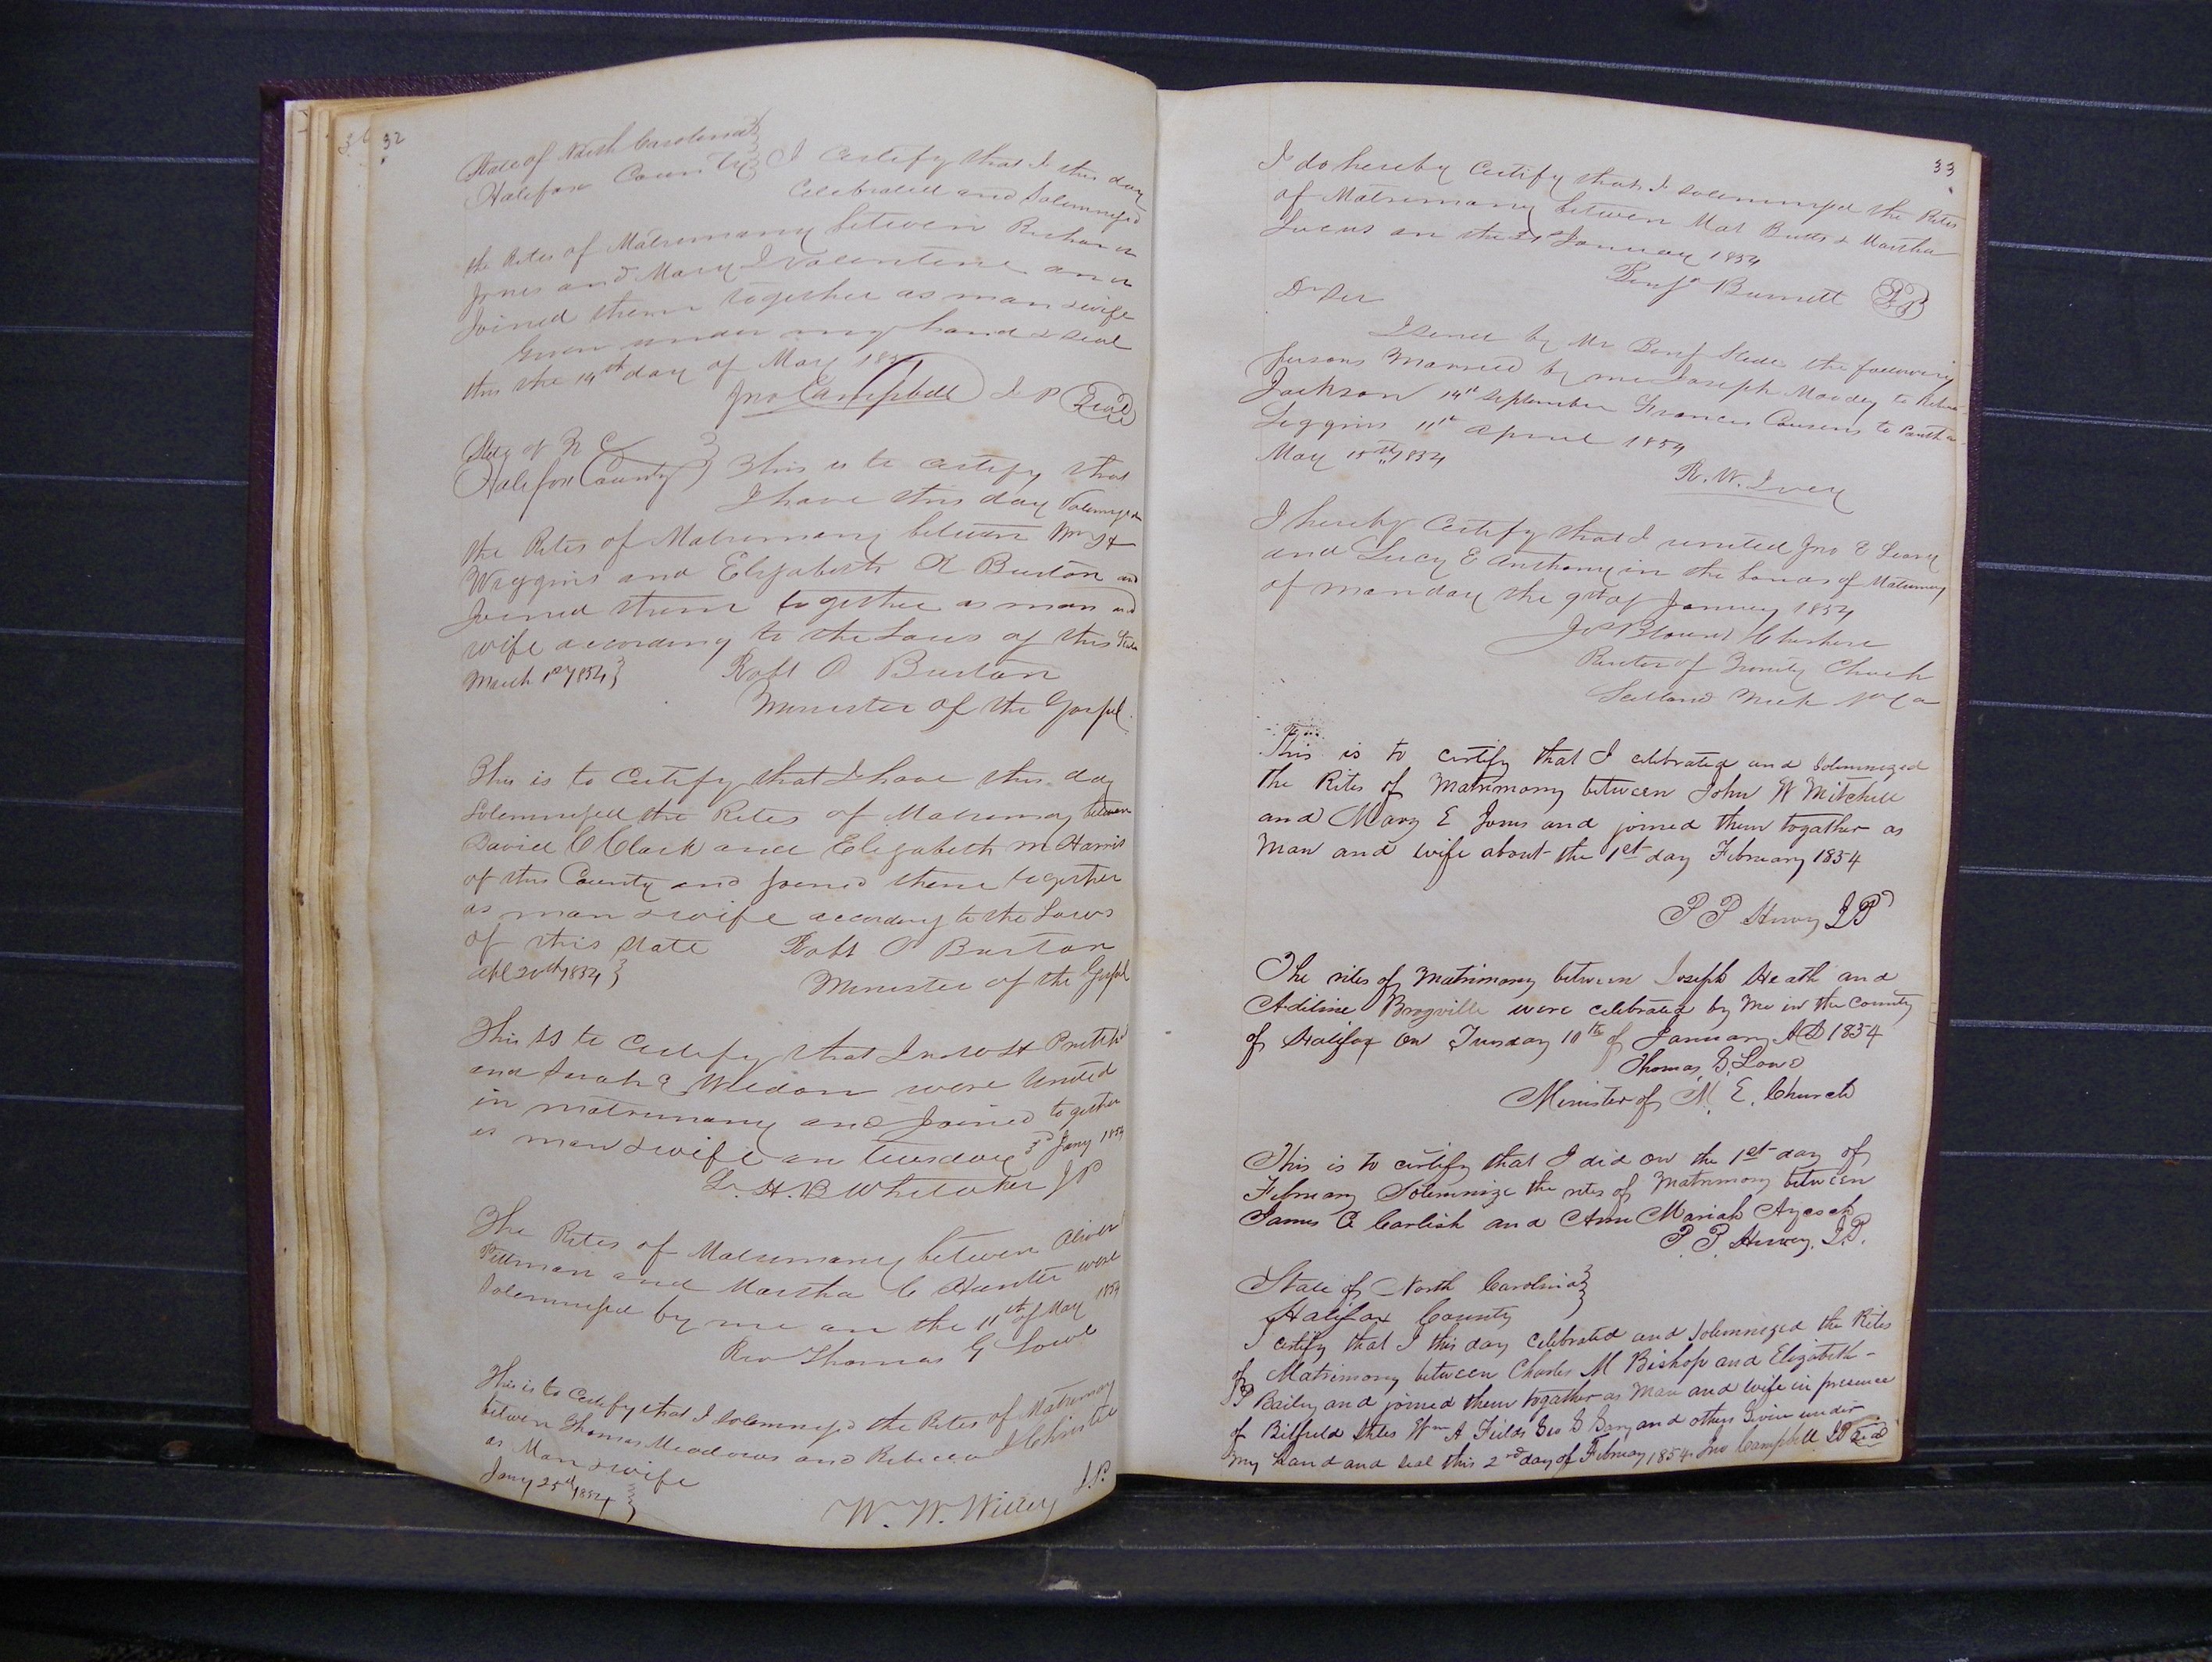 32
State of North Carolina
Halifax County } I Certify that I this day
Celebrated and Solemnized
the Rites of Matrimony between Richard
Jones and Mary J Valentine and
Joined them together as man & wife
Given under my hand & seal
this the 14th day of May 185
Jno Campbell J P Seal
State of N C
Halifax County } This is to Certify that
I have this day Solemnized
the Rites of Matrimony between Wm H
Wiggins and Elizabeth R Burton and
Joined them together as man and
wife according to the Laws of this State
March 1st 1854 } Robt O Burton
Minister of the Gospel
This is to Certify that I have this day
Solemnized the Rites of Matrimony between
David C Clark and Elizabeth M Harris
of this County and joined them together
as man & wife according to the Laws
of this State Robt O Burton
Apl 20th 1854 } Minister of the Gospel
This is to Certify that Jno W H
and Sarah E Weldon were United
in matrimony and Joined together
as man & wife on tuesday 3d Jany 1854
L. H. B Whitaker J P
The Rites of Matrimony between Oliver
Pittman and Martha C Hunter were
Solemnized by me on the 11th of May 1854
Rev Thomas G Lowe
This is to Certify that I solemnized the Rites of Matrimony
between Thomas Meadows and Rebecca J Christie
as Man & wife
Jany 25th 1854 } W. W. Willey J.P.
33
I do hereby Certify that I solemnized the Rites
of Matrimony between Mat Butts & Martha
Lucas on the January 1854
Benj Burnett
Dr Sir
I send by Mr Benj the following
persons Married by me Joseph Moody to
Jackson 14th September Frances Cousens to
Liggins 11th April 1854
May 15th 1854
R. W. Ivey
I hereby Certify that I united Jno E Leary
and Lucy E Anthony in the bonds of Matrimony
of monday the 9th of January 1854
Jos Blount Cheshire
Rector of Trinity Church
Scotland Neck No Ca
This is to certify that I celebrated and Solemnized
the Rites of Matrimony between John W Mitchell
and Mary E Jones and joined them togather as
Man and wife about the 1st day February 1854
P P Hervey J P
The rites of Matrimony between Joseph Heath and
Adiline Brogville were celebrated by Me in the County
of Halifax on Tuesday 10th of January AD 1854
Thomas G. Lowe
Minister of M. E. Church
This is to certify that I did on the 1st day of
February Solemnize the rites of Matrimony between
James C Carlish and Ann Mariah Aycock
P. P. Hervey. J.P.
State of North Carolina
Halifax County
I certify that I this day Celebrated and Solemnized the Rites
of Matrimony between Charles M Bishop and Elizabeth
P Bailey and joined them togather as Man and wife in presence
of Wm A Fields Geo and others Given under
my hand and seal this 2nd day of February 1854 Jno Campbell JP Seal